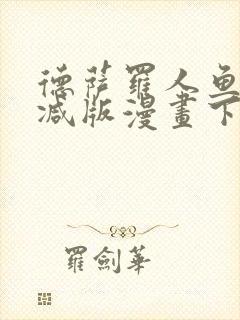 德薩羅人魚
減版漫畫下
羅劍華